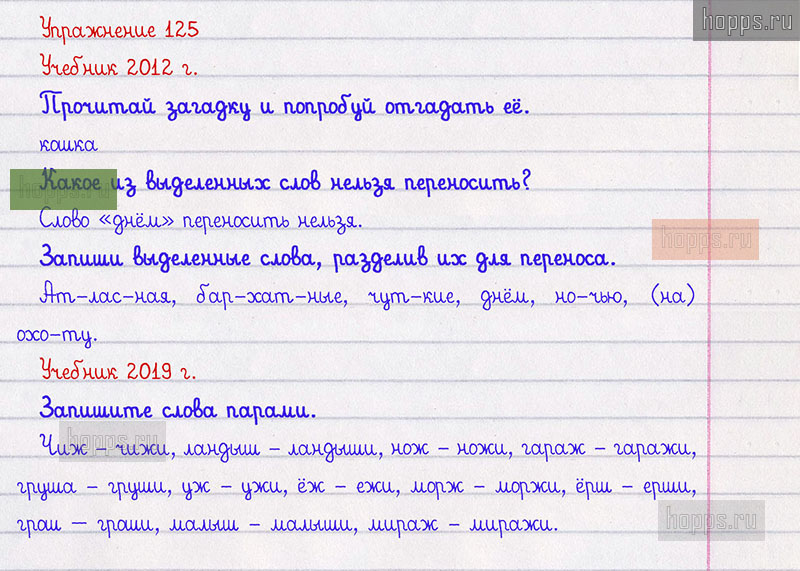 hopps.ru
Упражнение 125
Учебник 2012 г.
Прочитай загадку и попробуй отгадать её.
кошка
hopps.ru
Какое из выделенных слов нельзя переносить?
Слово «днём» переносить нельзя.
hopps.ru
Запиши выделенные слова, разделив их для переноса.
Ат-лас-ная, бар-хат-ные, чут-кие, днём, но-чью, (на)
охо-ту.
Учебник 2019 г.
Запишите слова парами.
hopps.ru
Чиж - чижи, ландыш - ландыши, нож - ножи, гараж - гаражи,
груша - груши, уж - ужи, ёж - ежи, морж - моржи, ёрш - ерши,
грош — гроши, малыш - малыши, мираж - миражи.
hopps.ru